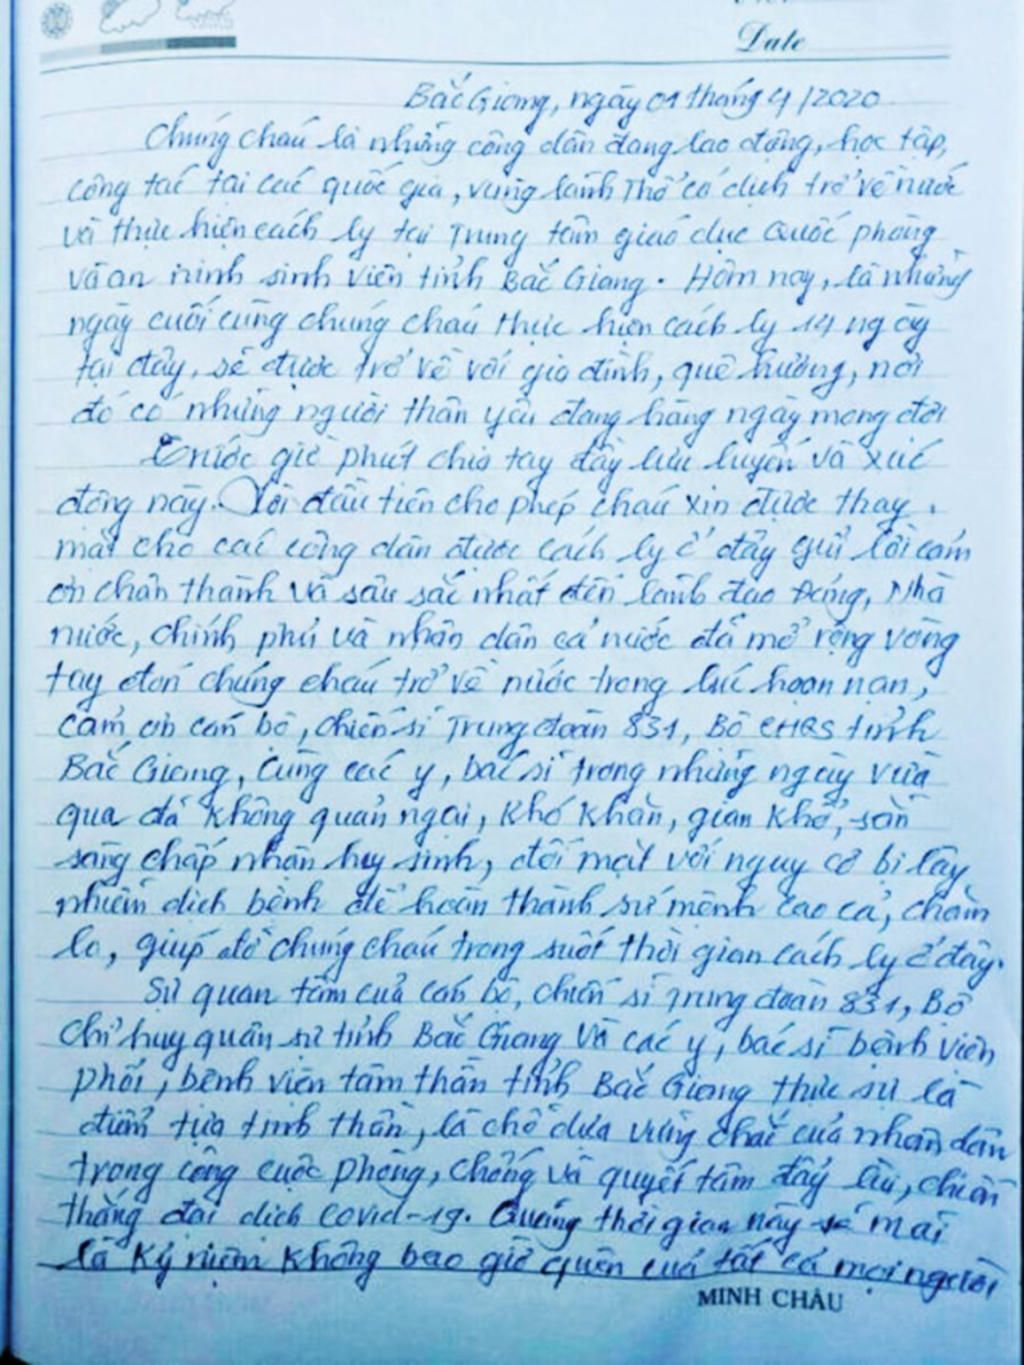 Date
Bắc Giang, ngày 01 tháng 4/2020
Chúng cháu là những công dân đang lao động, học tập,
công tác tại các quốc gia, vùng lãnh thổ có dịch trở về nước
và thực hiện cách ly tại Trung tâm giáo dục Quốc phòng
và an ninh sinh viên tỉnh Bắc Giang. Hôm nay, là những
ngày cuối cùng chúng cháu thực hiện cách ly 14 ngày
tại đây, sẽ được trở về với gia đình, quê hương, nơi
đó có những người thân yêu đang hàng ngày mong đợi
Trước giờ phút chia tay đầy lưu luyến và xúc
động này. Lời đầu tiên cho phép cháu xin được thay
mặt cho các công dân được cách ly ở đây gửi lời cảm
ơn chân thành và sâu sắc nhất đến lãnh đạo Đảng, Nhà
nước, chính phủ và nhân dân cả nước đã mở rộng vòng
tay đón chúng cháu trở về nước trong lúc hoạn nạn,
cảm ơn cán bộ, chiến sĩ Trung đoàn 831, Bộ CHQS tỉnh
Bắc Giang, cùng các y, bác sĩ trong những ngày vừa
qua đã không quản ngại, khó khăn, gian khổ, sẵn
sàng chấp nhận hy sinh, đối mặt với nguy cơ bị lây
nhiễm dịch bệnh để hoàn thành sứ mệnh cao cả, chăm
lo, giúp đỡ chúng cháu trong suốt thời gian cách ly ở đây.
Sự quan tâm của cán bộ, chiến sĩ Trung đoàn 831, Bộ
chỉ huy quân sự tỉnh Bắc Giang và các y, bác sĩ bệnh viện
phổi, bệnh viện tâm thần tỉnh Bắc Giang thực sự là
điểm tựa tinh thần, là chỗ dựa vững chắc của nhân dân
trong công cuộc phòng, chống và quyết tâm đẩy lùi, chiến
thắng đại dịch covid-19. Quãng thời gian này sẽ mãi
là kỷ niệm không bao giờ quên của tất cả mọi người
MINH CHÂU